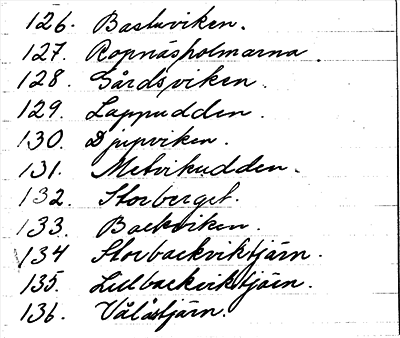 126. Bastuviken.
127. Ropnäsholmarna
128. Gårdsviken.
129. Lappudden.
130. Djupviken.
131. Metvikudden.
132. Storberget.
133. Backviken.
134 Storbackviktjärn.
135. Lillbackviktjärn.
136. Vålåstjärn.